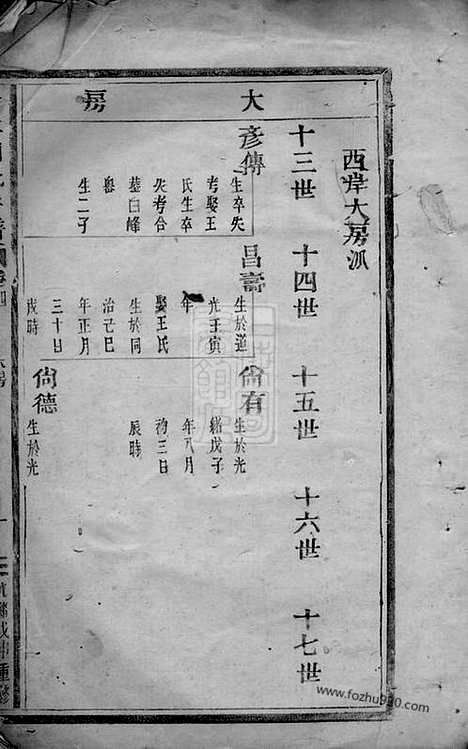 大房
西岸大房派
十三世 十四世 十五世 十六世 十七世
彥傳
生卒失
考娶王
氏生卒
失考合
墓白峰
生二子
昌壽
生於道
光壬寅
年
娶王氏
生於同
治己巳
年正月
三十日
戌時
尙有
生於光
緒戊子
年八月
初三日
辰時
尙德
生於光
www.fozhu920.com